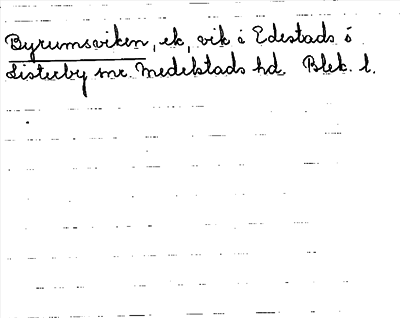 Byrumsviken, ek, vik i Edestads o
Listerby snr. Medelstads hd. Blek. l.